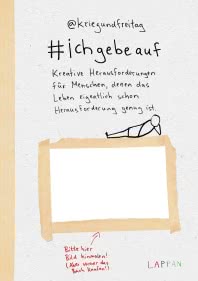 @kriegundfreitag
#ichgebeauf
Kreative Herausforderungen
für Menschen, denen das
Leben eigentlich schon
Herausforderung genug ist.
Bitte hier
Bild hinmalen!
(Aber vorher das
Buch kaufen!)
LAPPAN